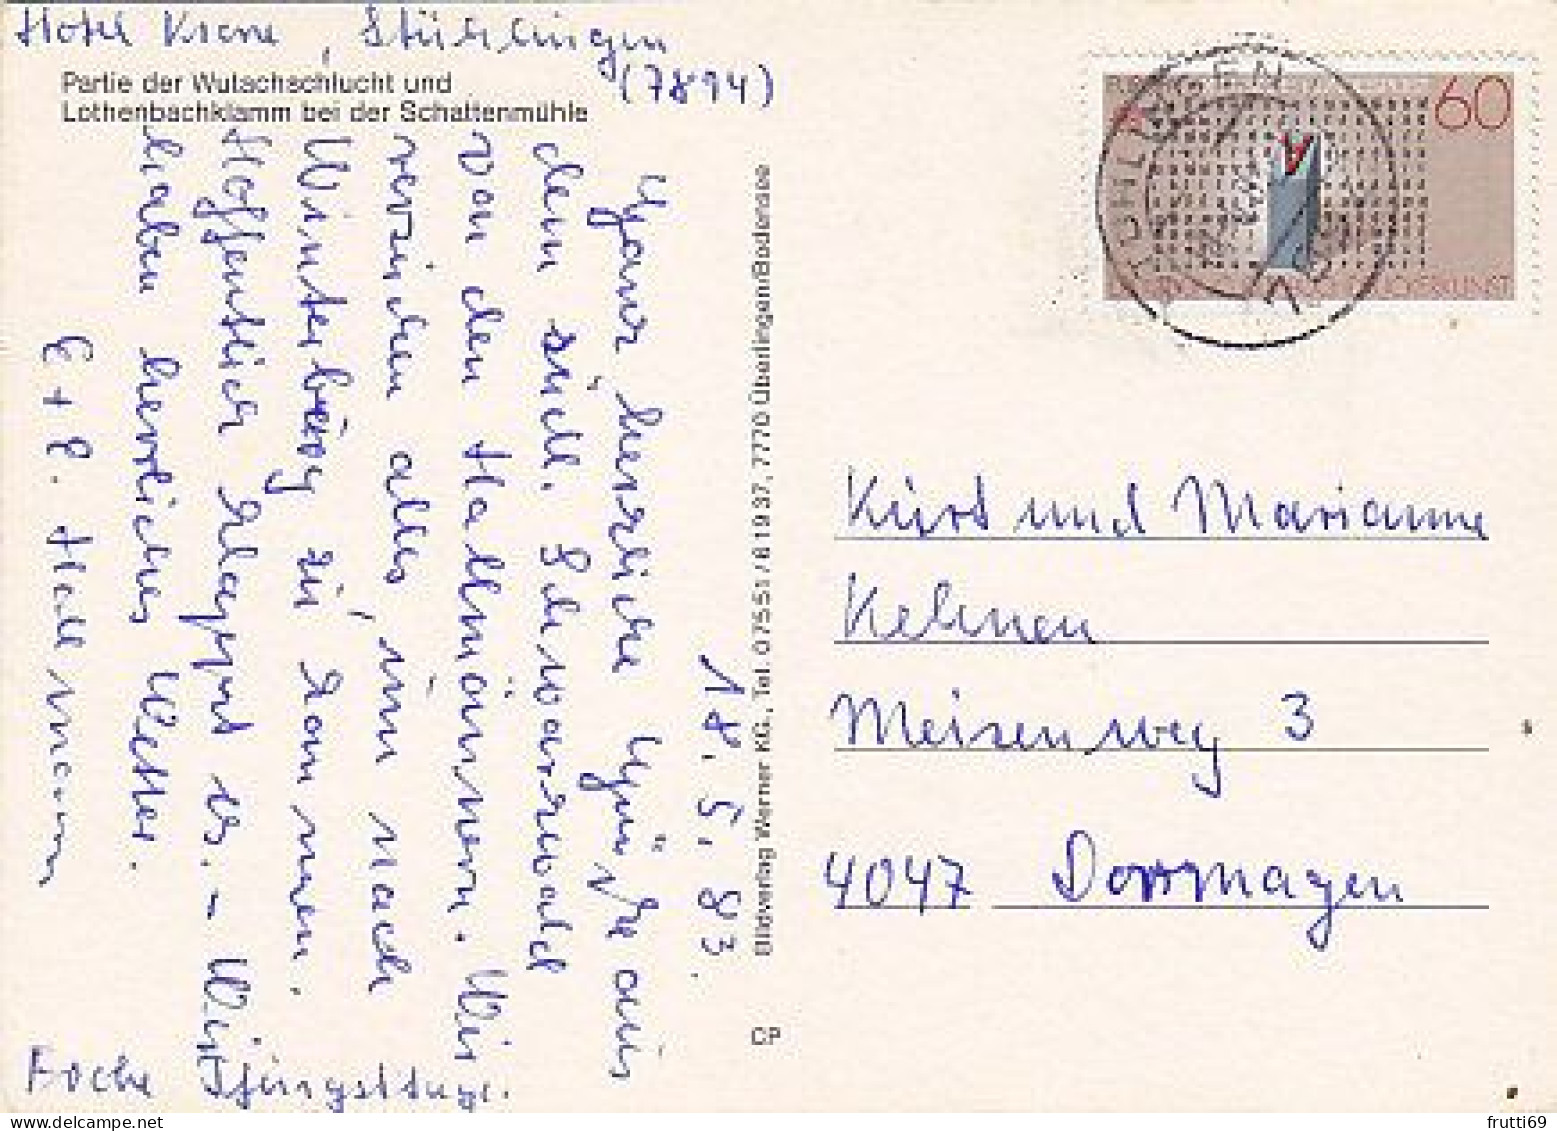 Hotel Krone, Stühlingen
(7894)
Partie der Wutachschlucht und
Lothenbachklamm bei der Schattenmühle
18.5.83.
Ganz herzliche Grüße aus
dem südl. Schwarzwald
von den Hallmännern. Wir
versuchen alles, um nach
zu kommen.
Hoffentlich klappt es. – Wir
haben herrliches Wetter.
E + E. Hallmann
Frohe Pfingsttage.
Bildverlag Werner KG., Tel. 07551/61937, 7770 Überlingen/Bodensee
CP
60
Kurt und Marianne
Meisenweg 3
4047 Dormagen
frutti69